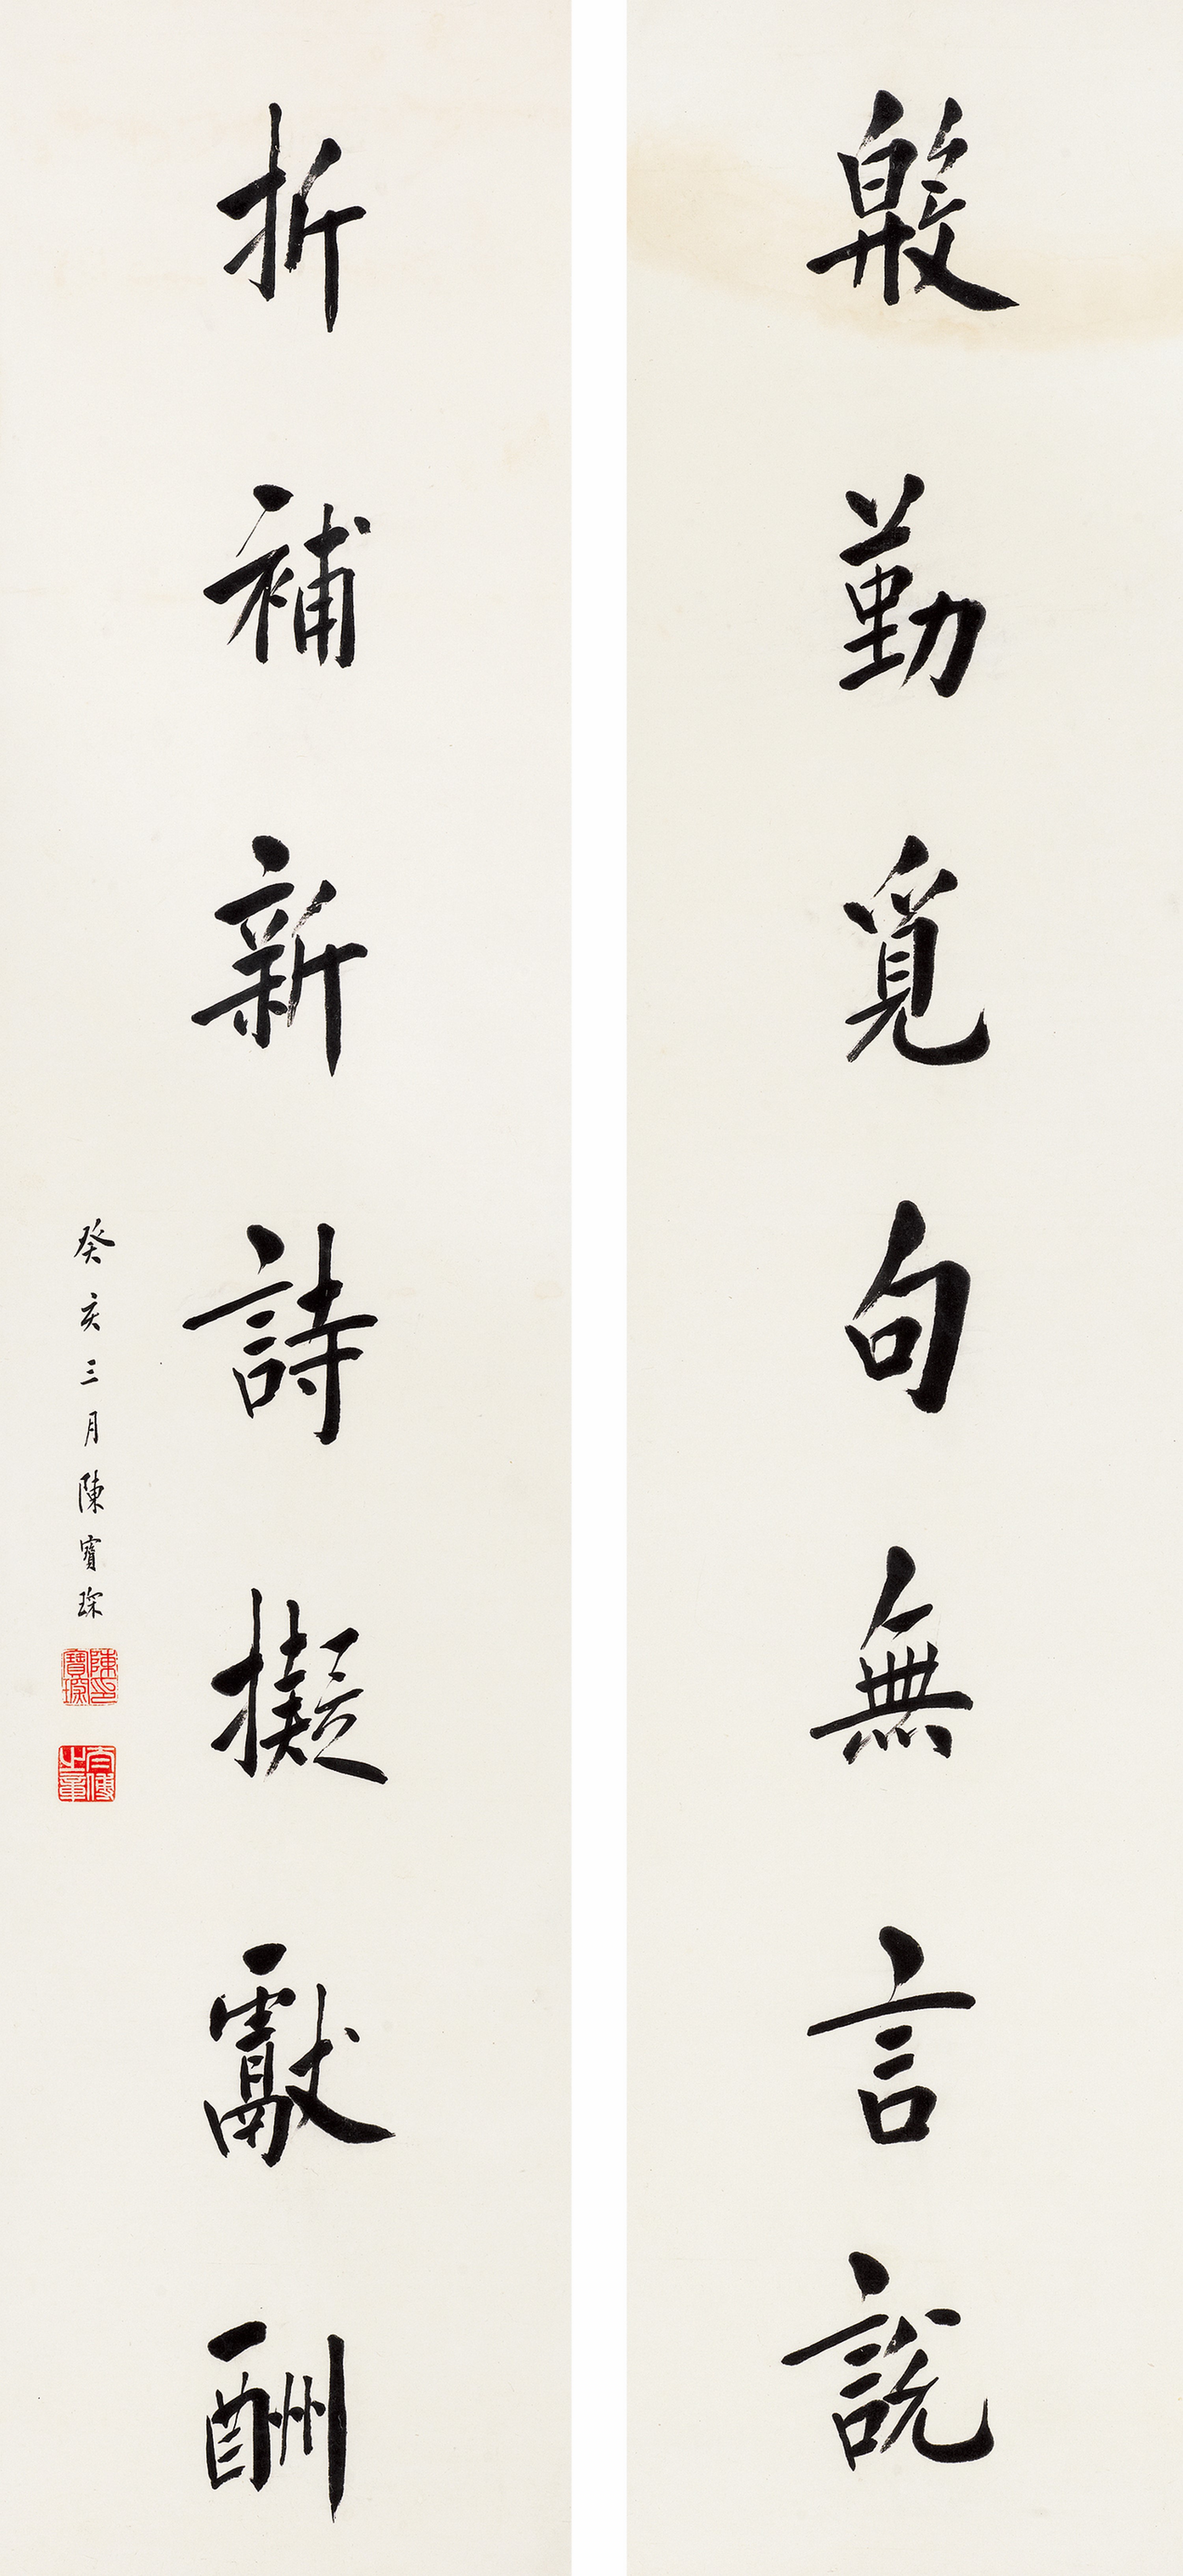 殷勤覓句無言說
折補新詩擬獻酬
癸亥三月陳寶琛
陳印寶琛
太傅之章